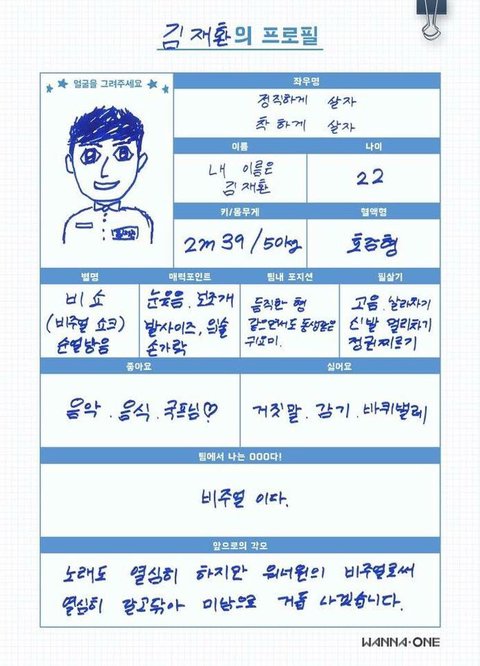 김재환의 프로필
얼굴을 그려주세요
좌우명
정직하게 살자
착하게 살자
이름
나이
내 이름은
김재환
22
키/몸무게
혈액형
2m 39 / 50kg
호랑형
별명
매력포인트
팀내 포지션
필살기
비쇼
(비주얼 쇼크)
순얼남음
눈웃음, 보조개
발사이즈, 입술
손가락
듬직한 형
같으면서도 동생같은
귀요미.
고음, 날라차기
신발 멀리차기
정권찌르기
좋아요
싫어요
음악, 음식, 국프님♡
거짓말, 감기, 바퀴벌레
팀에서 나는 OOO다!
비주얼 이다.
앞으로의 각오
노래도 열심히 하지만 워너원의 비주얼로써
열심히 갈고닦아 미남으로 거듭 나겠습니다.
WANNA·ONE